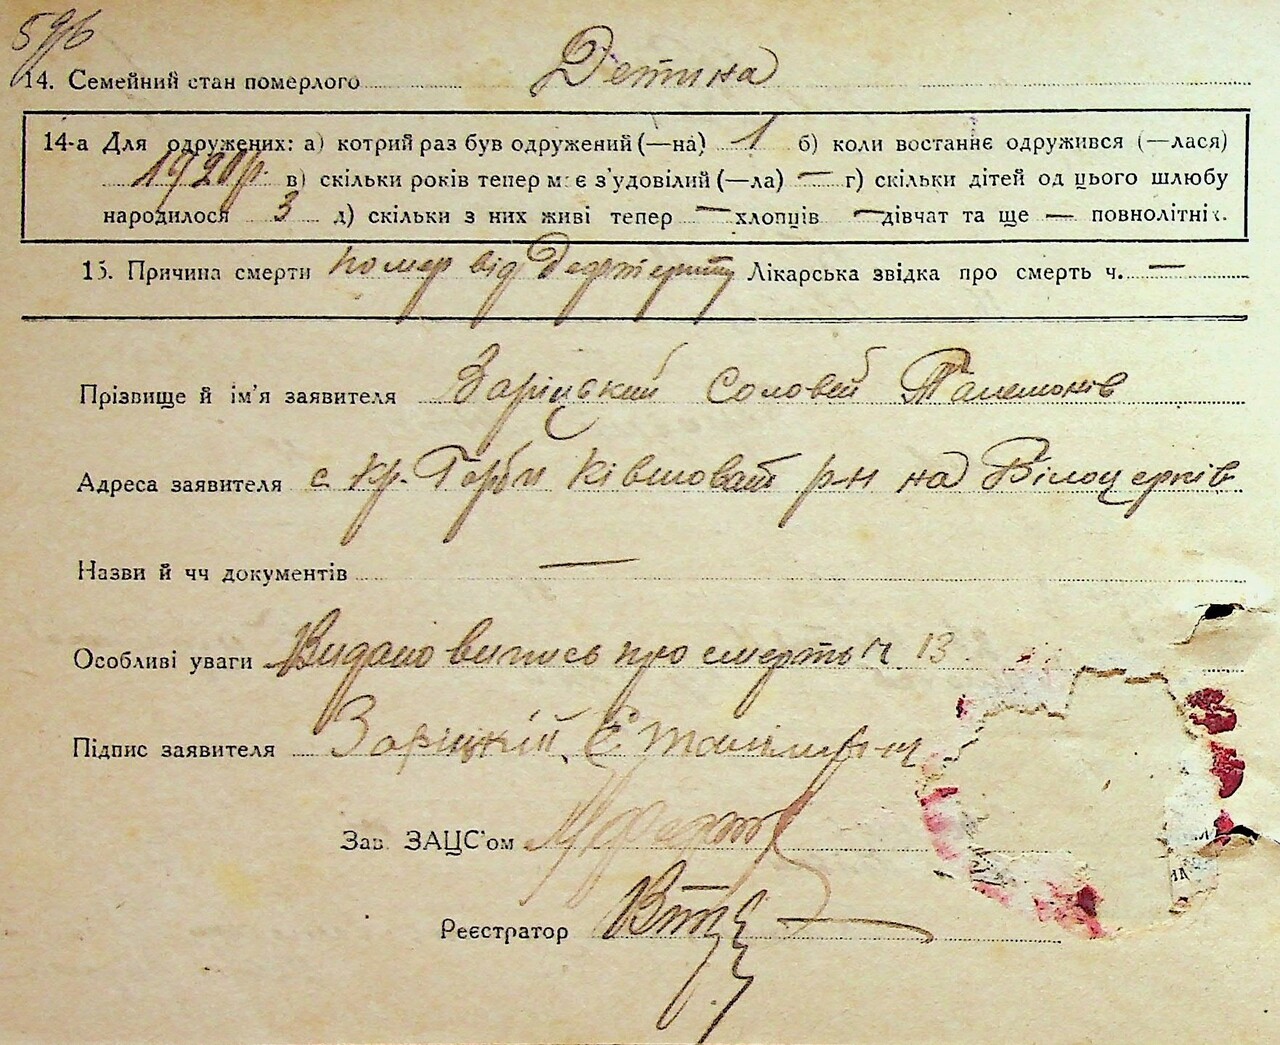 596
14. Семейний стан померлого Детина
14-а Для одружених: а) котрий раз був одружений (—на) 1 б) коли востаннє одружився (—лася)
1920 р. в) скільки років тепер має з'удовілий (—ла) — г) скільки дітей од цього шлюбу
народилося 3 д) скільки з них живі тепер — хлопців — дівчат та ще — повнолітніх.
15. Причина смерти Помер від Дефтериту Лікарська звідка про смерть ч. —
Прізвище й ім'я заявителя Заріцький Соловей Талемонів
Адреса заявителя с Кр. Герби Ківшоват р-н на Білоцерків
Назви й чч документів —
Особливі уваги Видано випись про смерть ч 13
Підпис заявителя Заріцкій С
Зав. ЗАЦС'ом
Реєстратор